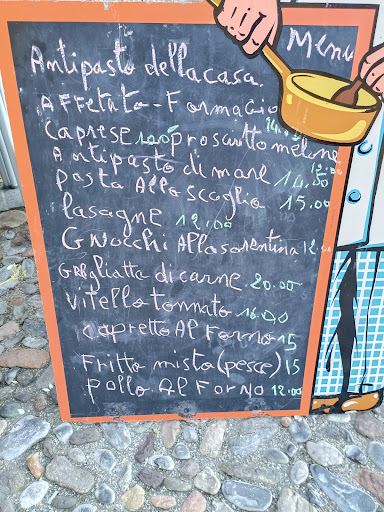 Menu
Antipasto della casa
Affetato-Formagio
Caprese 10.00 prosciutto melone
Antipasto di mare 14.00
pasta Alla scoglia 15.00
lasagne 12.00
Gnocchi Alla sorentina 12.00
Grigliatta di carne 20.00
Vitello tonnato 16.00
Capretto Al Forno 15
Fritto misto (pesce) 15
pollo Al Forno 12.00